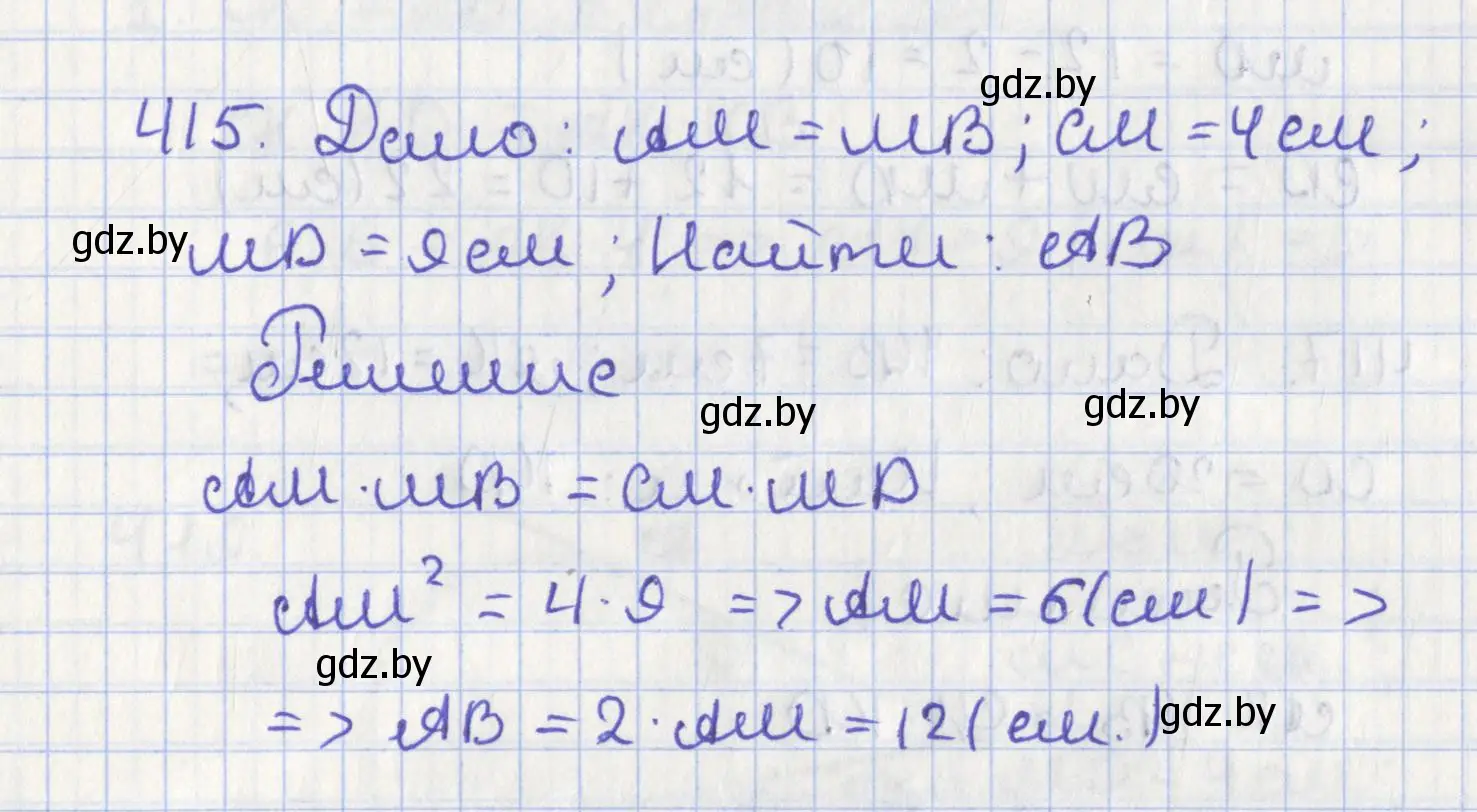 gdz.by
415. Дано: AM = MB; CM = 4 см;
gdz.by
MD = 9 см; Найти: AB
Решение
gdz.by
gdz.by
AM · MB = CM · MD
AM² = 4 · 9 => AM = 6 (см) =>
gdz.by
=> AB = 2 · AM = 12 (см.)
gdz.by